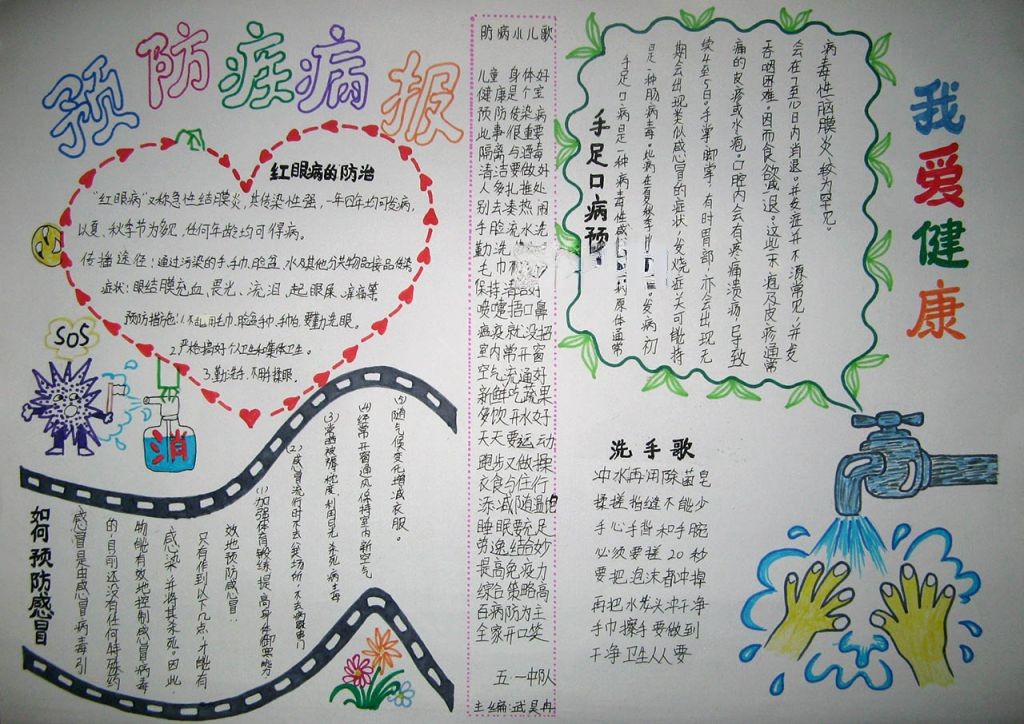 预防疾病报
红眼病的防治
"红眼病"又称急性结膜炎,其传染性强,一年四季均可发病,
以夏、秋季节为多见,任何年龄均可得病。
传播途径:通过污染的手、手巾、脸盆、水及其他公共物品接触传染
症状:眼结膜充血、畏光、流泪、起眼屎、疼痛等
预防措施:1.不
2.严格搞好个人卫生和集体卫生。
3.勤洗手、不用手揉眼。
SOS
消
如何预防感冒
感冒是由感冒病毒引
的,目前还没有任何特殊药
物能有效地控制感冒病毒
感染,并将其杀死。因此
只有作到以下几点,才能有
效地预防感冒:
(1)加强体育锻炼,提高身体御寒能力
(2)感冒流行时不去公共场所,不去病家串门
(3)常晒被褥、枕皮,利用日光杀死病毒
(4)经常开窗通风保持室内新空气
(5)随气候变化增减衣服。
防病小儿歌
儿童身体好
健康是个宝
预防传染病
此事很重要
隔离与消毒
清洁要做好
人多扎堆处
别去凑热闹
手脸流水洗
勤洗
毛巾
保持清洁好
喷嚏捂口鼻
瘟疫就没招
室内常开窗
空气流通好
新鲜吃蔬果
多饮开水好
天天要运动
跑步又做操
衣食与住行
添减随温饱
睡眠要充足
劳逸结合妙
提高免疫力
综合策略高
百病防为主
全家开口笑
五·一中队
主编:武昊冉
手足口病预
手足口病是一种病毒性感
是一种肠病毒。此病在夏秋季
期会出现类似感冒的症状,发烧症关可能持
续4至5日。手掌、脚掌、有时胃部,亦会出现无
痛的皮疹或水疱。口腔内会有疼痛溃疡,导致
吞咽困难,因而食欲减退。这些水疱及皮疹通常
会在7至10日内消退。并发症并不源常见,并发
病毒性脑膜炎,较为罕见。
我爱健康
洗手歌
冲水再用除菌皂
揉搓指缝不能少
手心手背和手腕
必须要搓20秒
要把泡沫都冲掉
再把水龙头冲干净
手巾擦手要做到
干净卫生人人要